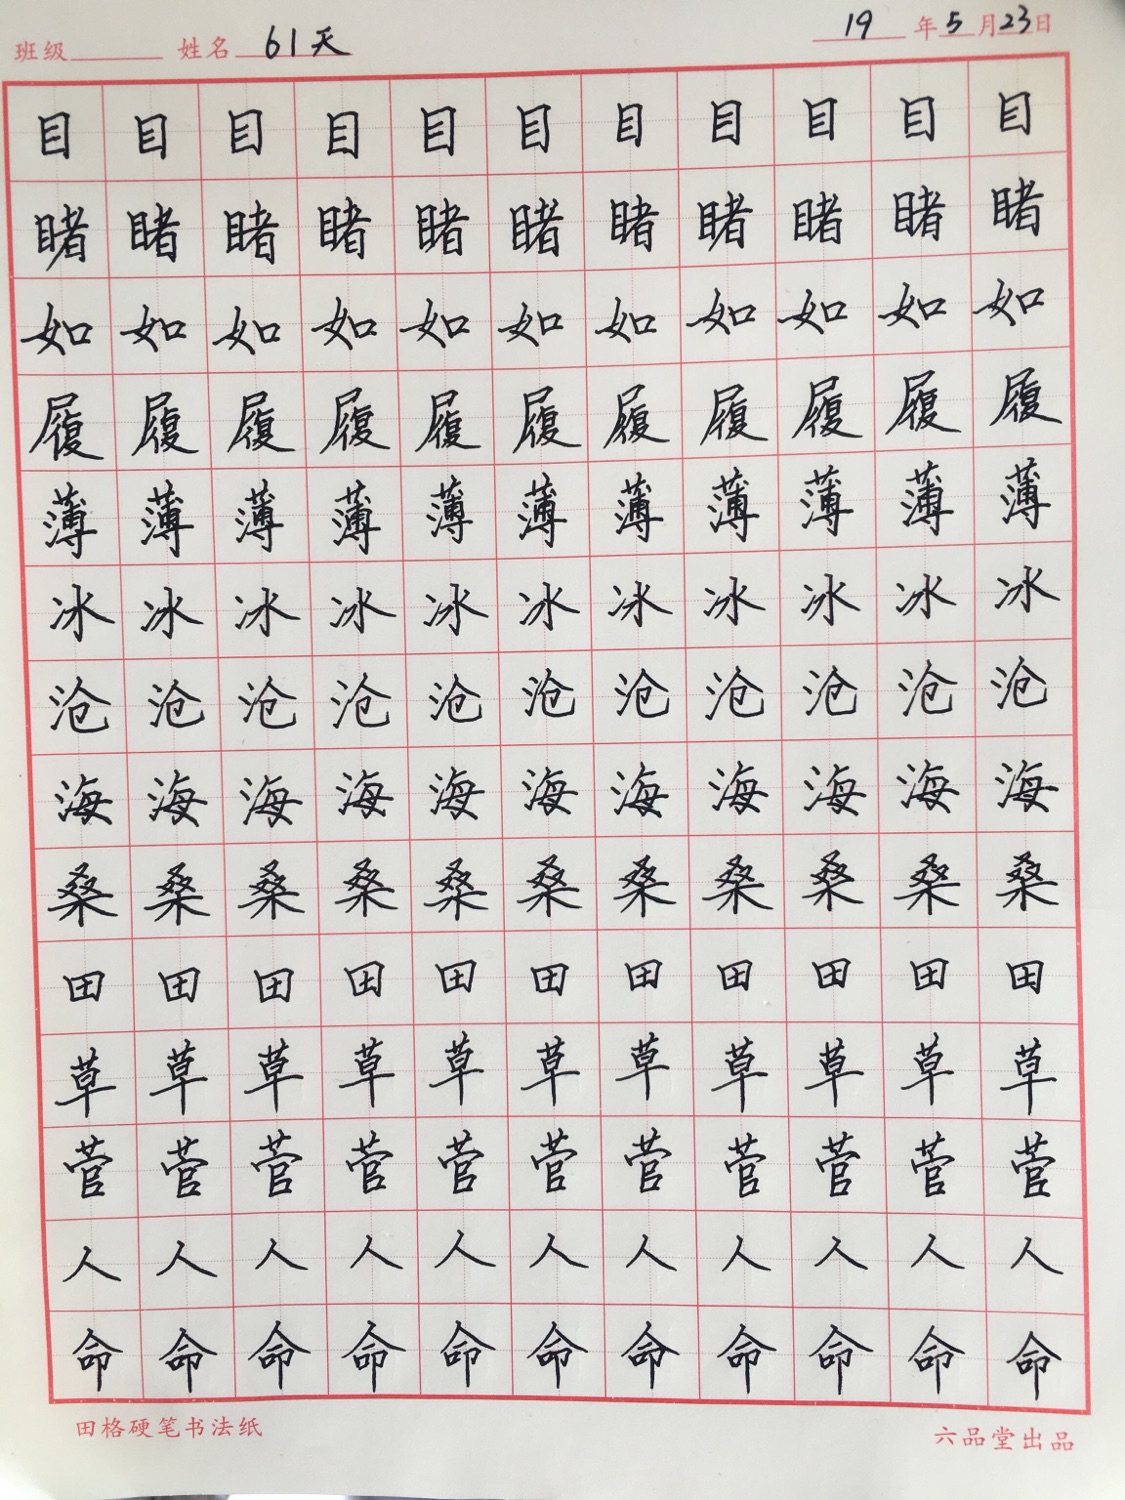 班级 姓名 61天 19年5月23日
目目目目目目目目目目目
睹睹睹睹睹睹睹睹睹睹睹
如如如如如如如如如如如
履履履履履履履履履履履
薄薄薄薄薄薄薄薄薄薄薄
冰冰冰冰冰冰冰冰冰冰冰
沧沧沧沧沧沧沧沧沧沧沧
海海海海海海海海海海海
桑桑桑桑桑桑桑桑桑桑桑
田田田田田田田田田田田
草草草草草草草草草草草
菅菅菅菅菅菅菅菅菅菅菅
人人人人人人人人人人人
命命命命命命命命命命命
田格硬笔书法纸 六品堂出品